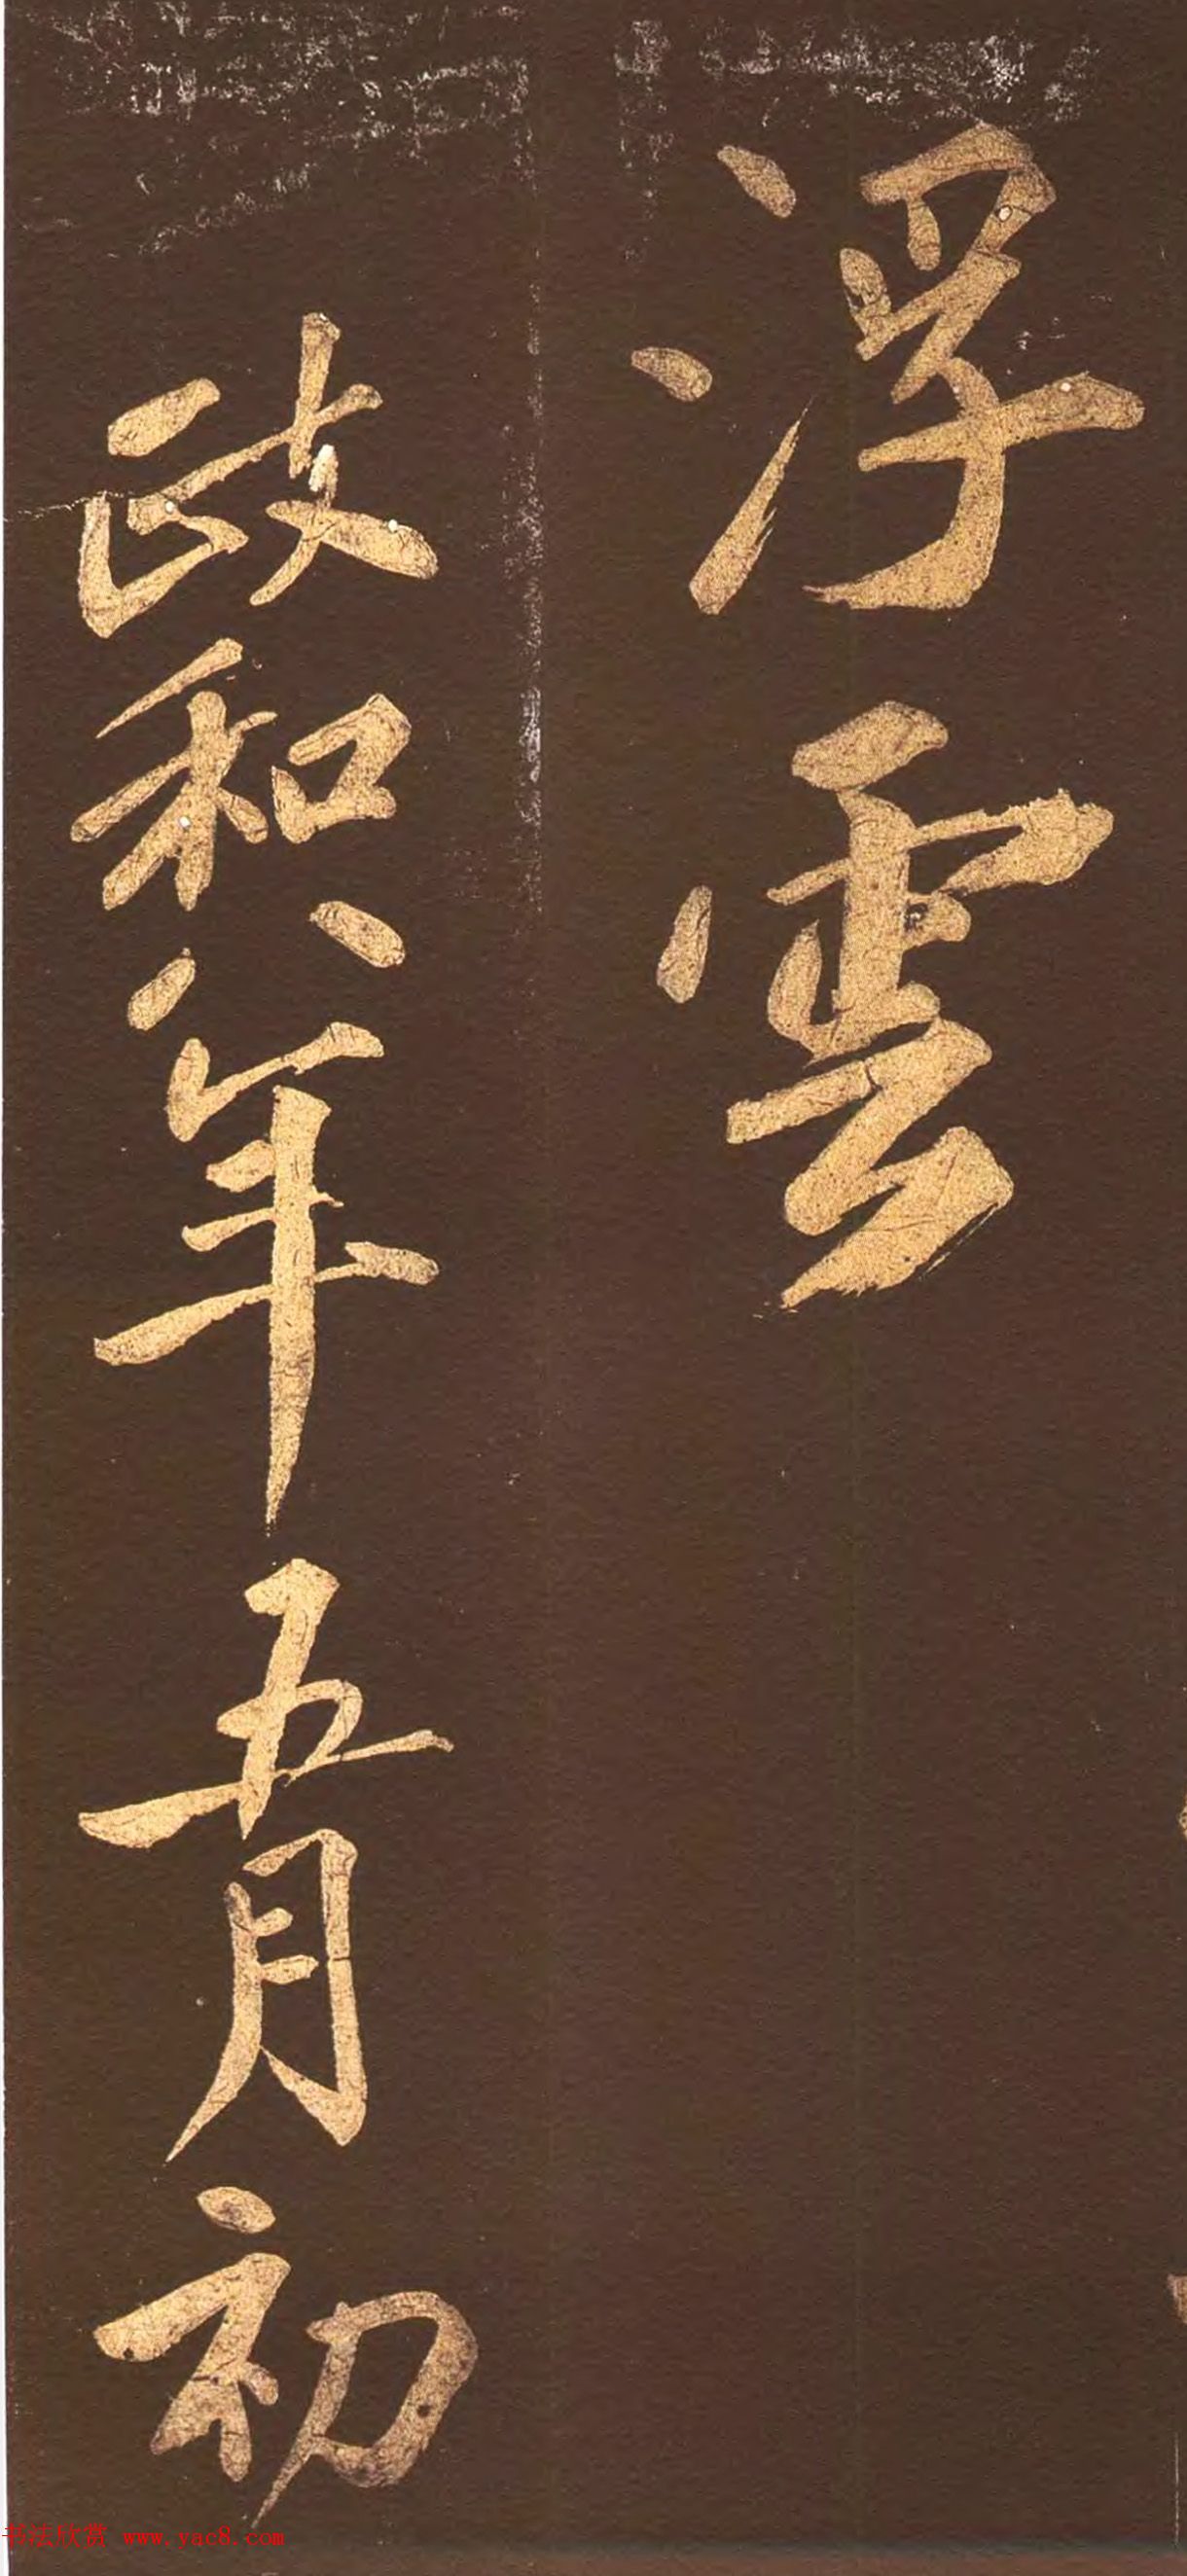 浮雲
政和八年五月初
书法欣赏 www.yac8.com